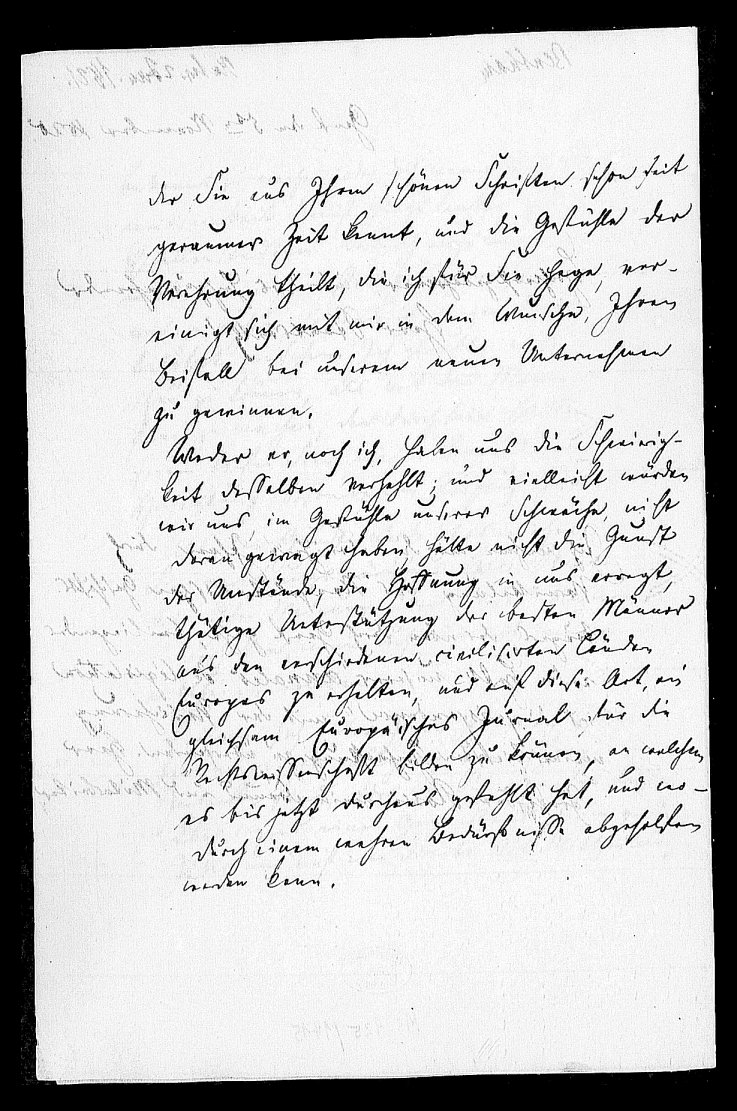 der Sie aus Ihren schönen Schriften schon seit
geraumer Zeit kennt, und die Gefühle der
Verehrung theilt, die ich für Sie hege, ver-
einigt sich mit mir in dem Wunsche, Ihren
Beifall bei unserem neuen Unternehmen
zu gewinnen.
Weder er, noch ich, haben uns die Schwierig-
keit desselben verhehlt; und vielleicht würden
wir uns, im Gefühle unserer Schwäche, nicht
daran gewagt haben, hätte nicht die Gunst
der Umstände, die Hoffnung in uns erregt,
thätige Unterstützung der besten Männer
aus den verschiedenen civilisirten Länder
Europas zu erhalten, und auf diese Art, ein
gleichsam Europäisches Journal für die
Rechtswissenschaft bilden zu können, an welchem
es bis jetzt durchaus gefehlt hat, und wo-
durch einem wahren Bedürfnisse abgeholfen
werden kann.